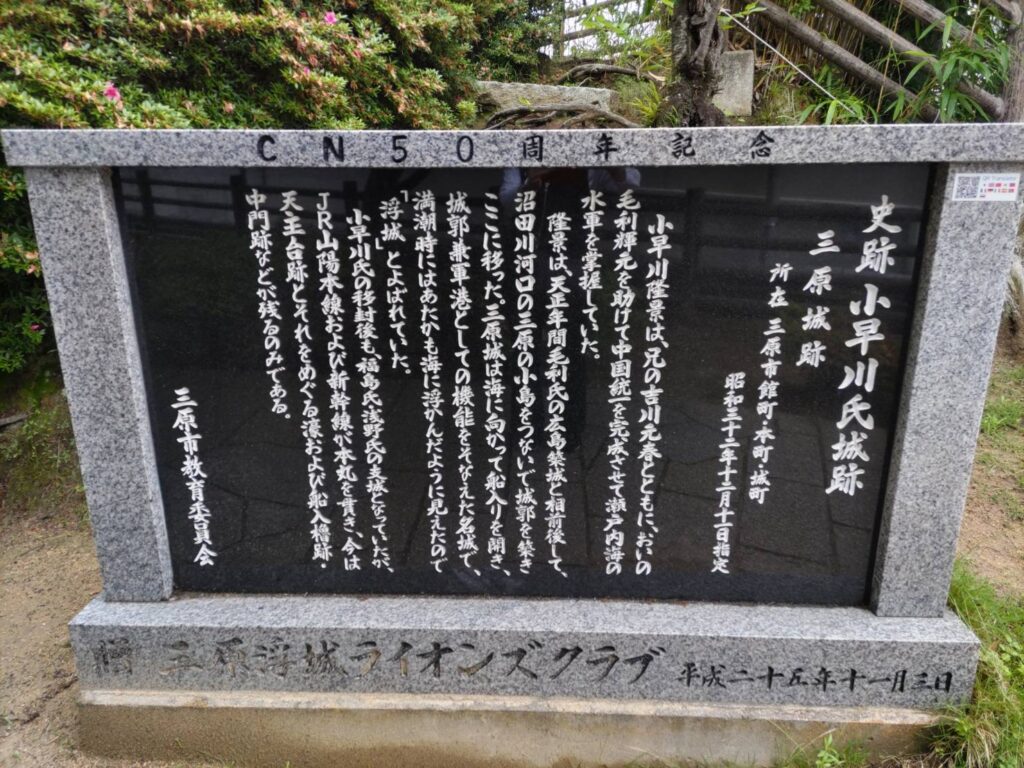 CN50周年記念
史跡小早川氏城跡
三原城跡
所在 三原市館町・本町・城町
昭和三十二年十二月十一日指定
小早川隆景は、兄の吉川元春とともに、おいの
毛利輝元を助けて中国統一を完成させて瀬戸内海の
水軍を掌握していた。
隆景は、天正年間毛利氏の広島築城と相前後して、
沼田川河口の三原の小島をつないで城郭を築き
ここに移った。三原城は海に向かって船入りを開き、
城郭兼軍港としての機能をそなえた名城で、
満潮時にはあたかも海に浮かんだように見えたので
「浮城」とよばれていた。
小早川氏の移封後も、福島氏浅野氏の支城となっていたが、
JR山陽本線および新幹線が本丸を貫き、今は
天主台跡とそれをめぐる濠および船入櫓跡・
中門跡などが残るのみである。
三原市教育委員会
三原浮城ライオンズクラブ
平成二十五年十一月三日